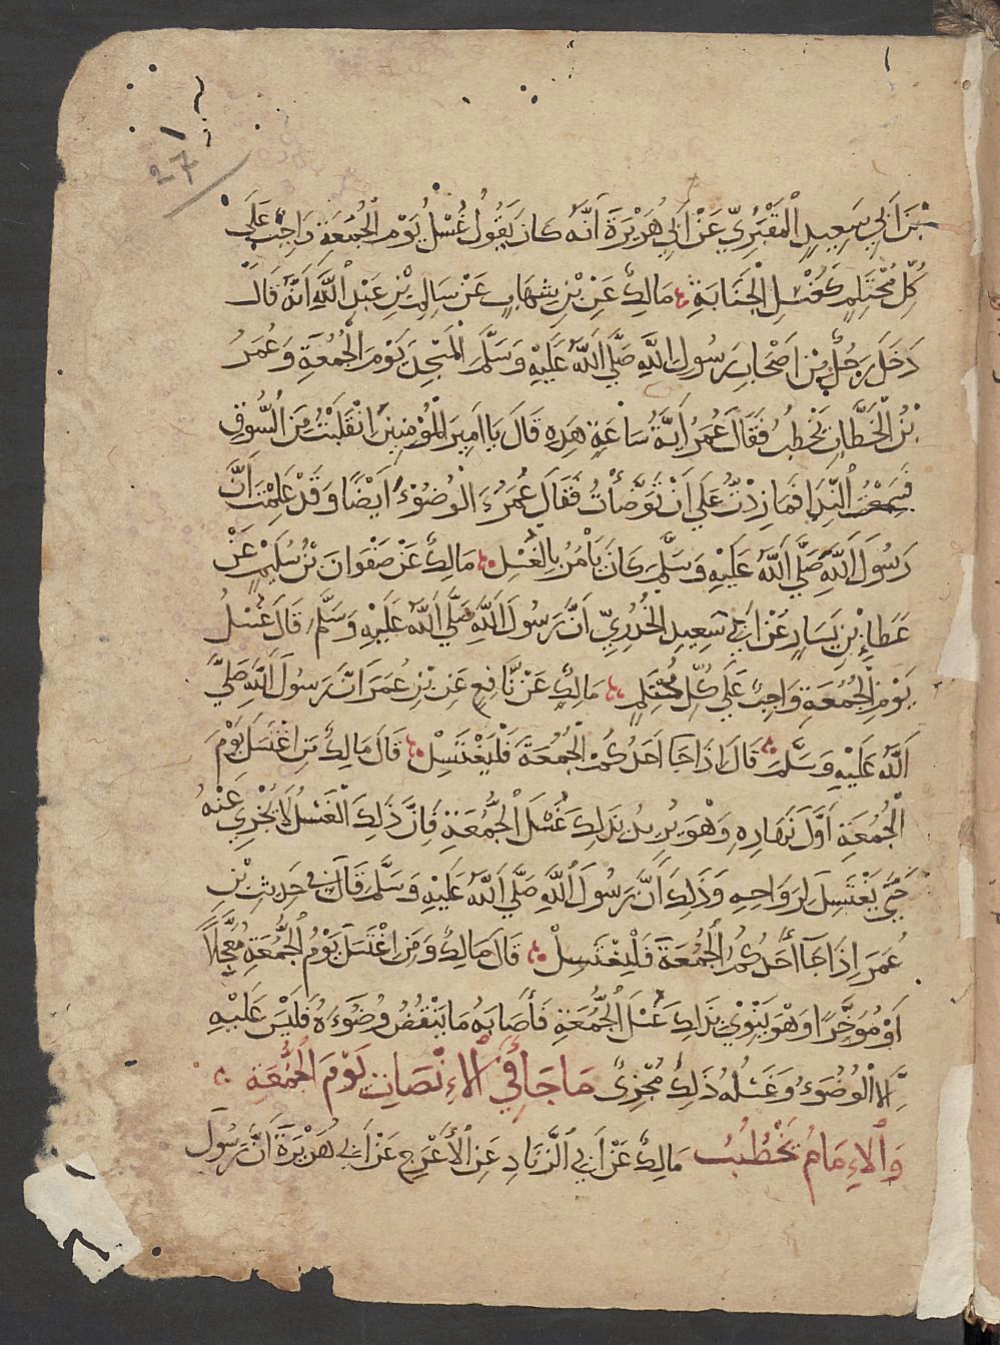 27
بْنِ أَبِي سَعِيدٍ الْمَقْبُرِيِّ عَنْ أَبِي هُرَيْرَةَ أَنَّهُ كَانَ يَقُولُ غُسْلُ يَوْمِ الْجُمُعَةِ وَاجِبٌ عَلَى
كُلِّ مُحْتَلِمٍ كَغُسْلِ الْجَنَابَةِ مَالِكٌ عَنِ بْنِ شِهَابٍ عَنْ سَالِمِ بْنِ عَبْدِ اللَّهِ أَنَّهُ قَالَ
دَخَلَ رَجُلٌ مِنْ أَصْحَابِ رَسُولِ اللَّهِ صَلَّى اللَّهُ عَلَيْهِ وَسَلَّمَ الْمَسْجِدَ يَوْمَ الْجُمُعَةِ وَعُمَرُ
بْنُ الْخَطَّابِ يَخْطُبُ فَقَالَ عُمَرُ أَيَّةُ سَاعَةٍ هَذِهِ قَالَ يَا أَمِيرَ الْمُؤْمِنِينَ انْقَلَبْتُ مِنَ السُّوقِ
فَسَمِعْتُ النِّدَا فَمَا زِدْتُ عَلَى أَنْ تَوَضَّأْتُ فَقَالَ عُمَرُ وَالْوُضُوْءُ أَيْضًا وَقَدْ عَلِمْتَ أَنَّ
رَسُولَ اللَّهِ صَلَّى اللَّهُ عَلَيْهِ وَسَلَّمَ كَانَ يَأْمُرُ بِالْغُسْلِ مَالِكٌ عَنْ صَفْوَانَ بْنِ سُلَيْمٍ عَنْ
عَطَاءِ بْنِ يَسَارٍ عَنْ أَبِي سَعِيدٍ الْخُدْرِيِّ أَنَّ رَسُولَ اللَّهِ صَلَّى اللَّهُ عَلَيْهِ وَسَلَّمَ قَالَ غُسْلُ
يَوْمِ الْجُمُعَةِ وَاجِبٌ عَلَى كُلِّ مُحْتَلِمٍ مَالِكٌ عَنْ نَّافِعٍ عَنِ بْنِ عُمَرَ أَنَّ رَسُولَ اللَّهِ صَلَّى
اللَّهُ عَلَيْهِ وَسَلَّمَ قَالَ إِذَا جَا أَحَدُكُمُ الْجُمُعَةَ فَلْيَغْتَسِلْ قَالَ مَالِكٌ مَنِ اغْتَسَلَ يَوْمَ
الْجُمُعَةِ أَوَّلَ نَهَارِهِ وَهْوَ يُرِيدُ بِذَلِكَ غُسْلَ الْجُمُعَةِ فَإِنَّ ذَلِكَ الْغُسْلَ لَا يُجْزِي عَنْهُ
حَتَّى يَغْتَسِلَ لِرَوَاحِهِ وَذَلِكَ أَنَّ رَسُولَ اللَّهِ صَلَّى اللَّهُ عَلَيْهِ وَسَلَّمَ قَالَ فِي حَدِيثِ بْنِ
عُمَرَ إِذَا جَآ أَحَدُكُمُ الْجُمُعَةَ فَلْيَغْتَسِلْ قَالَ مَالِكٌ وَمَنِ اغْتَسَلَ يَوْمَ الْجُمُعَةِ مُعَجِّلًا
أَوْ مُوَخِّرًا وَهْوَ يَنْوِي بِذَلِكَ غُسْلَ الْجُمُعَةِ فَأَصَابَهُ مَا يَنْقُضُ وُضُوْءَهُ فَلَيْسَ عَلَيْهِ
إِلَّا الْوُضُوءُ وَغُسْلُهُ ذَلِكَ مُجْزِئٌ مَا جَا فِي الْإِنْصَاتِ يَوْمَ الْجُمُعَةِ
وَالْإِمَامُ يَخْطُبُ مَالِكٌ عَنْ أَبِي الزِّنَادِ عَنِ الْأَعْرَجِ عَنْ أَبِي هُرَيْرَةَ أَنَّ رَسُولَ